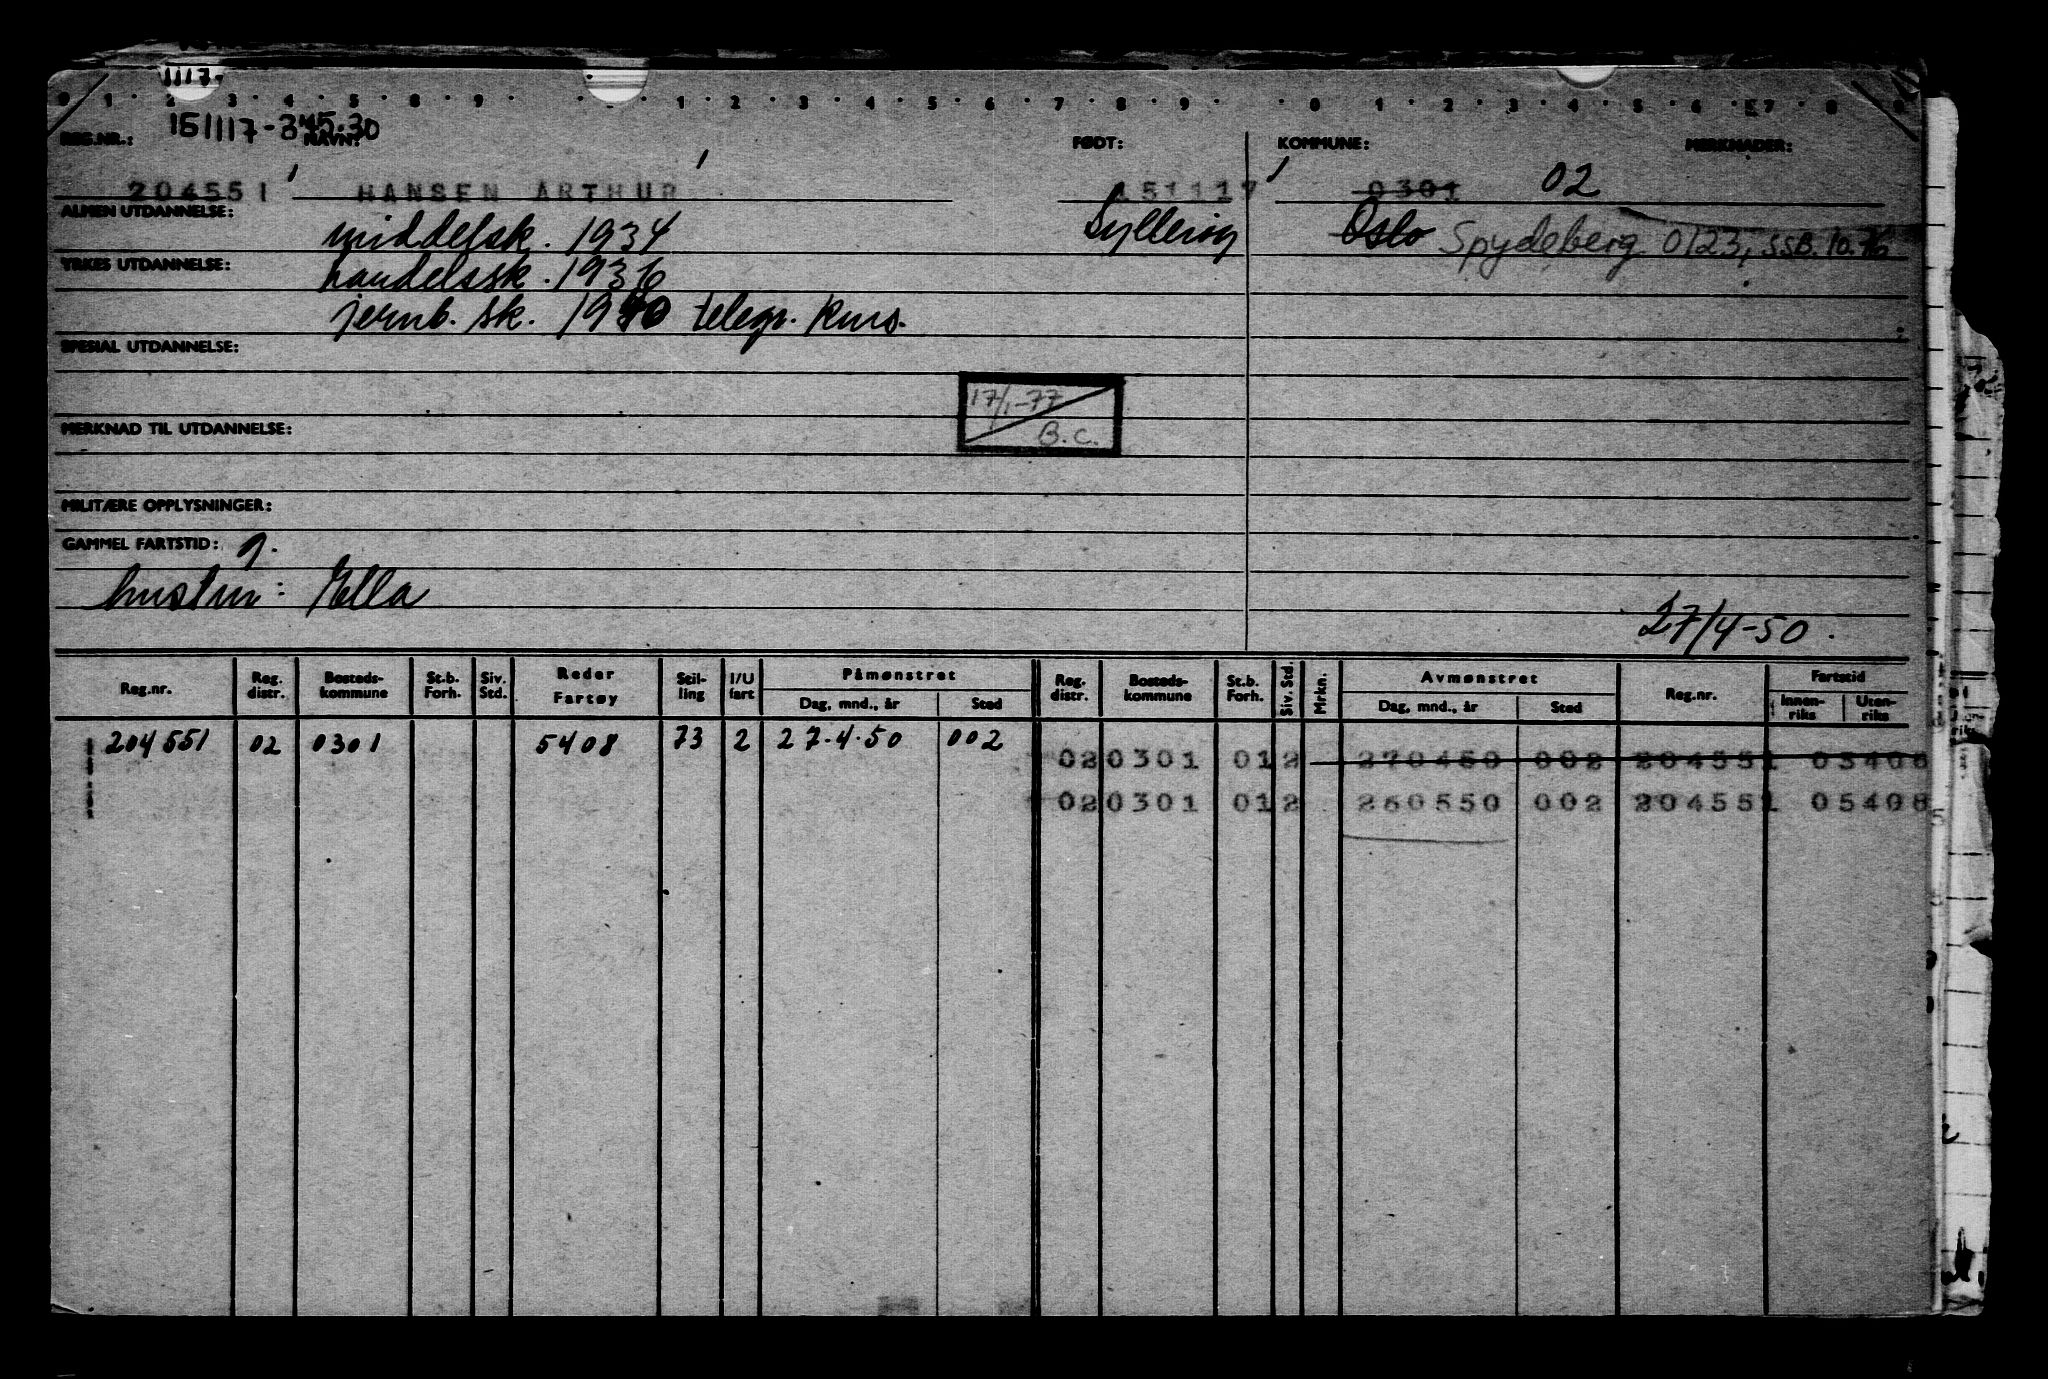 1117
0 1 2 3 4 5 8 9 1 2 3 4 5 6 7 8 9 0 1 2 3 4 5 6 7 8
151117-345.30
REG.NR.: NAVN: FØDT: KOMMUNE: MERKNADER:
204551 HANSEN ARTHUR 151117 0301 02
ALMEN UTDANNELSE: middelsk. 1934 Sylling Oslo Spydeberg 0123, SSB. 10.76
YRKES UTDANNELSE: handelssk. 1936
jernb. sk. 1940 telegr. kurs.
SPESIAL UTDANNELSE:
17/1-77
B.C.
MERKNAD TIL UTDANNELSE:
MILITÆRE OPPLYSNINGER:
GAMMEL FARTSTID:
hustru: Ella
27/4-50.
Reg.nr. Reg. distr. Bosteds-kommune St.b. Forh. Siv. Std. Reder Fartøy Stil-ling I/U fart Påmønstret Dag, mnd., år Sted Reg. distr. Bosteds-kommune St.b. Forh. Siv. Std. Mrkn. Avmønstret Dag, mnd., år Sted Reg.nr. Fartstid Innen-riks Uten-riks
204551 02 0301 5408 73 2 27.4.50 002
02 0301 01 2 270450 002 204551 05408
02 0301 01 2 260550 002 204551 05408